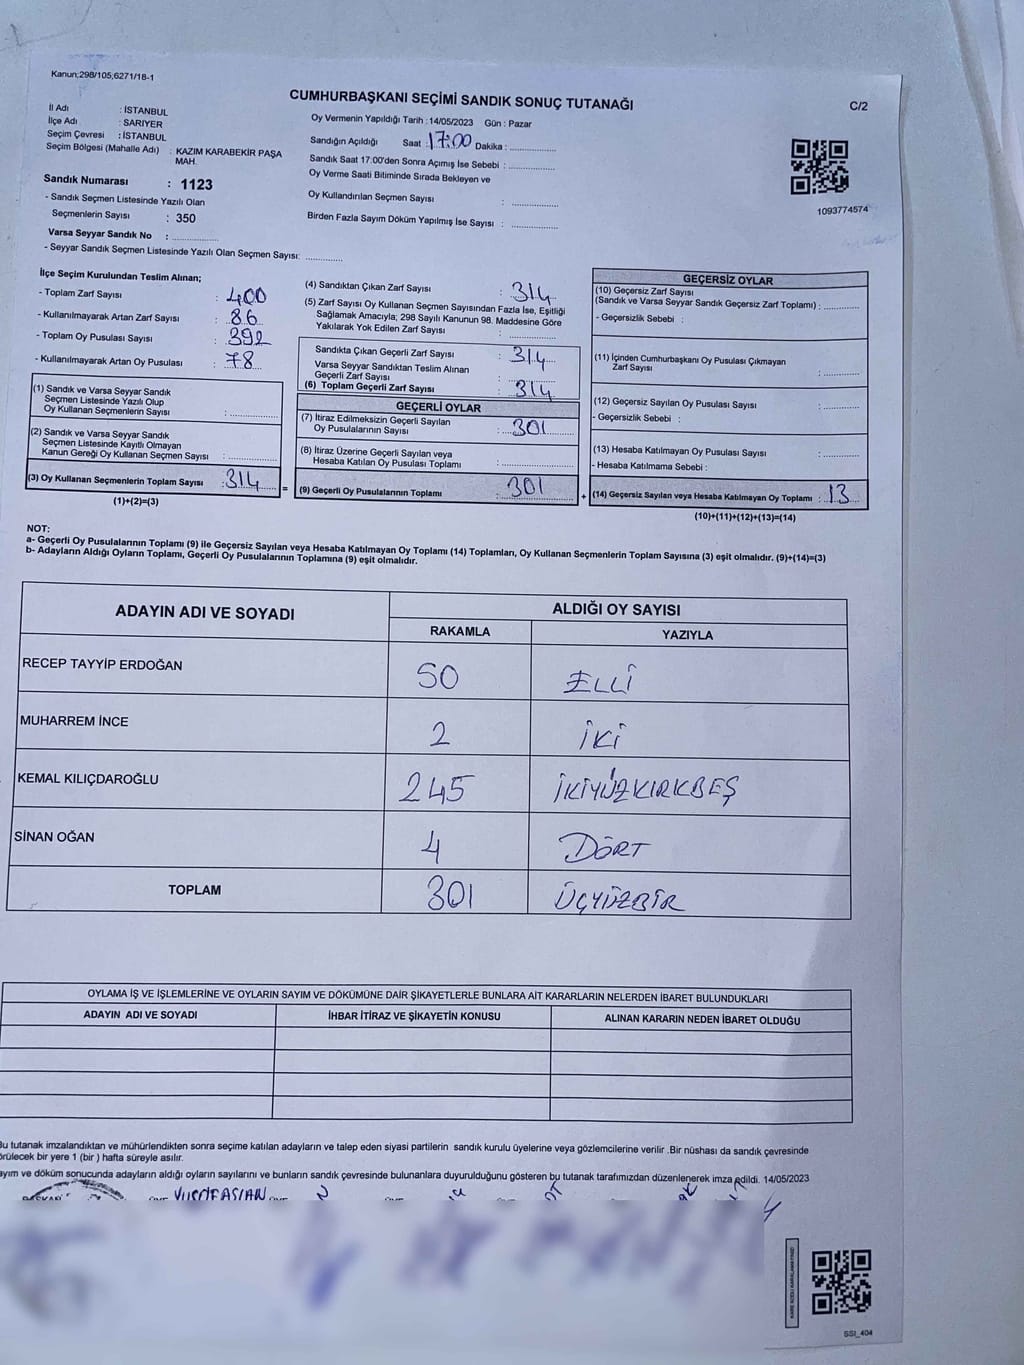 Kanun;298/105;6271/18-1
CUMHURBAŞKANI SEÇİMİ SANDIK SONUÇ TUTANAĞI
C/2
İl Adı : İSTANBUL
İlçe Adı : SARIYER
Seçim Çevresi : İSTANBUL
Seçim Bölgesi (Mahalle Adı) : KAZIM KARABEKİR PAŞA
MAH.
Sandık Numarası : 1123
- Sandık Seçmen Listesinde Yazılı Olan
Seçmenlerin Sayısı : 350
Varsa Seyyar Sandık No : ...............
- Seyyar Sandık Seçmen Listesinde Yazılı Olan Seçmen Sayısı: ............
Oy Vermenin Yapıldığı Tarih :14/05/2023 Gün : Pazar
Sandığın Açıldığı Saat :17:00 Dakika : ...............
Sandık Saat 17.00'den Sonra Açımış İse Sebebi : ...............
Oy Verme Saati Bitiminde Sırada Bekleyen ve
Oy Kullandırılan Seçmen Sayısı : ...............
Birden Fazla Sayım Döküm Yapılmış İse Sayısı : ...............
1093774574
İlçe Seçim Kurulundan Teslim Alınan;
- Toplam Zarf Sayısı : 400
- Kullanılmayarak Artan Zarf Sayısı : 86
- Toplam Oy Pusulası Sayısı : 392
- Kullanılmayarak Artan Oy Pusulası : 78
(1) Sandık ve Varsa Seyyar Sandık
Seçmen Listesinde Yazılı Olup
Oy Kullanan Seçmenlerin Sayısı : ...............
(2) Sandık ve Varsa Seyyar Sandık
Seçmen Listesinde Kayıtlı Olmayan
Kanun Gereği Oy Kullanan Seçmen Sayısı : ...............
(3) Oy Kullanan Seçmenlerin Toplam Sayısı : 314
(1)+(2)=(3)
(4) Sandıktan Çıkan Zarf Sayısı : 314
(5) Zarf Sayısı Oy Kullanan Seçmen Sayısından Fazla İse, Eşitliği
Sağlamak Amacıyla; 298 Sayılı Kanunun 98. Maddesine Göre
Yakılarak Yok Edilen Zarf Sayısı : ...............
Sandıkta Çıkan Geçerli Zarf Sayısı : 314
Varsa Seyyar Sandıktan Teslim Alınan
Geçerli Zarf Sayısı : ...............
(6) Toplam Geçerli Zarf Sayısı : 314
GEÇERLİ OYLAR
(7) İtiraz Edilmeksizin Geçerli Sayılan
Oy Pusulalarının Sayısı : 301
(8) İtiraz Üzerine Geçerli Sayılan veya
Hesaba Katılan Oy Pusulası Toplamı : ...............
= (9) Geçerli Oy Pusulalarının Toplamı : 301
GEÇERSİZ OYLAR
(10) Geçersiz Zarf Sayısı
(Sandık ve Varsa Seyyar Sandık Geçersiz Zarf Toplamı) : ............
- Geçersizlik Sebebi :
(11) İçinden Cumhurbaşkanı Oy Pusulası Çıkmayan
Zarf Sayısı : ............
(12) Geçersiz Sayılan Oy Pusulası Sayısı : ............
- Geçersizlik Sebebi :
(13) Hesaba Katılmayan Oy Pusulası Sayısı : ............
- Hesaba Katılmama Sebebi :
+ (14) Geçersiz Sayılan veya Hesaba Katılmayan Oy Toplamı : 13
(10)+(11)+(12)+(13)=(14)
NOT:
a- Geçerli Oy Pusulalarının Toplamı (9) ile Geçersiz Sayılan veya Hesaba Katılmayan Oy Toplamı (14) Toplamları, Oy Kullanan Seçmenlerin Toplam Sayısına (3) eşit olmalıdır. (9)+(14)=(3)
b- Adayların Aldığı Oyların Toplamı, Geçerli Oy Pusulalarının Toplamına (9) eşit olmalıdır.
ADAYIN ADI VE SOYADI
ALDIĞI OY SAYISI
RAKAMLA YAZIYLA
RECEP TAYYİP ERDOĞAN 50 ELLİ
MUHARREM İNCE 2 İKİ
KEMAL KILIÇDAROĞLU 245 İKİYÜZKIRKBEŞ
SİNAN OĞAN 4 DÖRT
TOPLAM 301 ÜÇYÜZBİR
OYLAMA İŞ VE İŞLEMLERİNE VE OYLARIN SAYIM VE DÖKÜMÜNE DAİR ŞİKAYETLERLE BUNLARA AİT KARARLARIN NELERDEN İBARET BULUNDUKLARI
ADAYIN ADI VE SOYADI İHBAR İTİRAZ VE ŞİKAYETİN KONUSU ALINAN KARARIN NEDEN İBARET OLDUĞU
Bu tutanak imzalandıktan ve mühürlendikten sonra seçime katılan adayların ve talep eden siyasi partilerin sandık kurulu üyelerine veya gözlemcilerine verilir .Bir nüshası da sandık çevresinde
örülecek bir yere 1 (bir ) hafta süreyle asılır.
ayım ve döküm sonucunda adayların aldığı oyların sayılarını ve bunların sandık çevresinde bulunanlara duyurulduğunu gösteren bu tutanak tarafımızdan düzenlenerek imza edildi. 14/05/2023
SSI_404